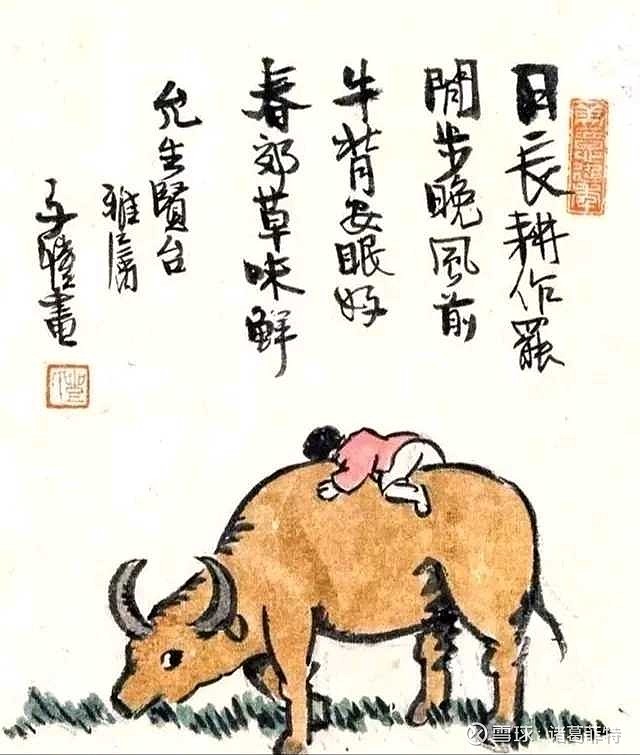 日長耕作罷
閒步晚風前
牛背安眠好
春郊草味鮮
允生賢台
雅屬
子愷畫
雪球:诸葛菲特